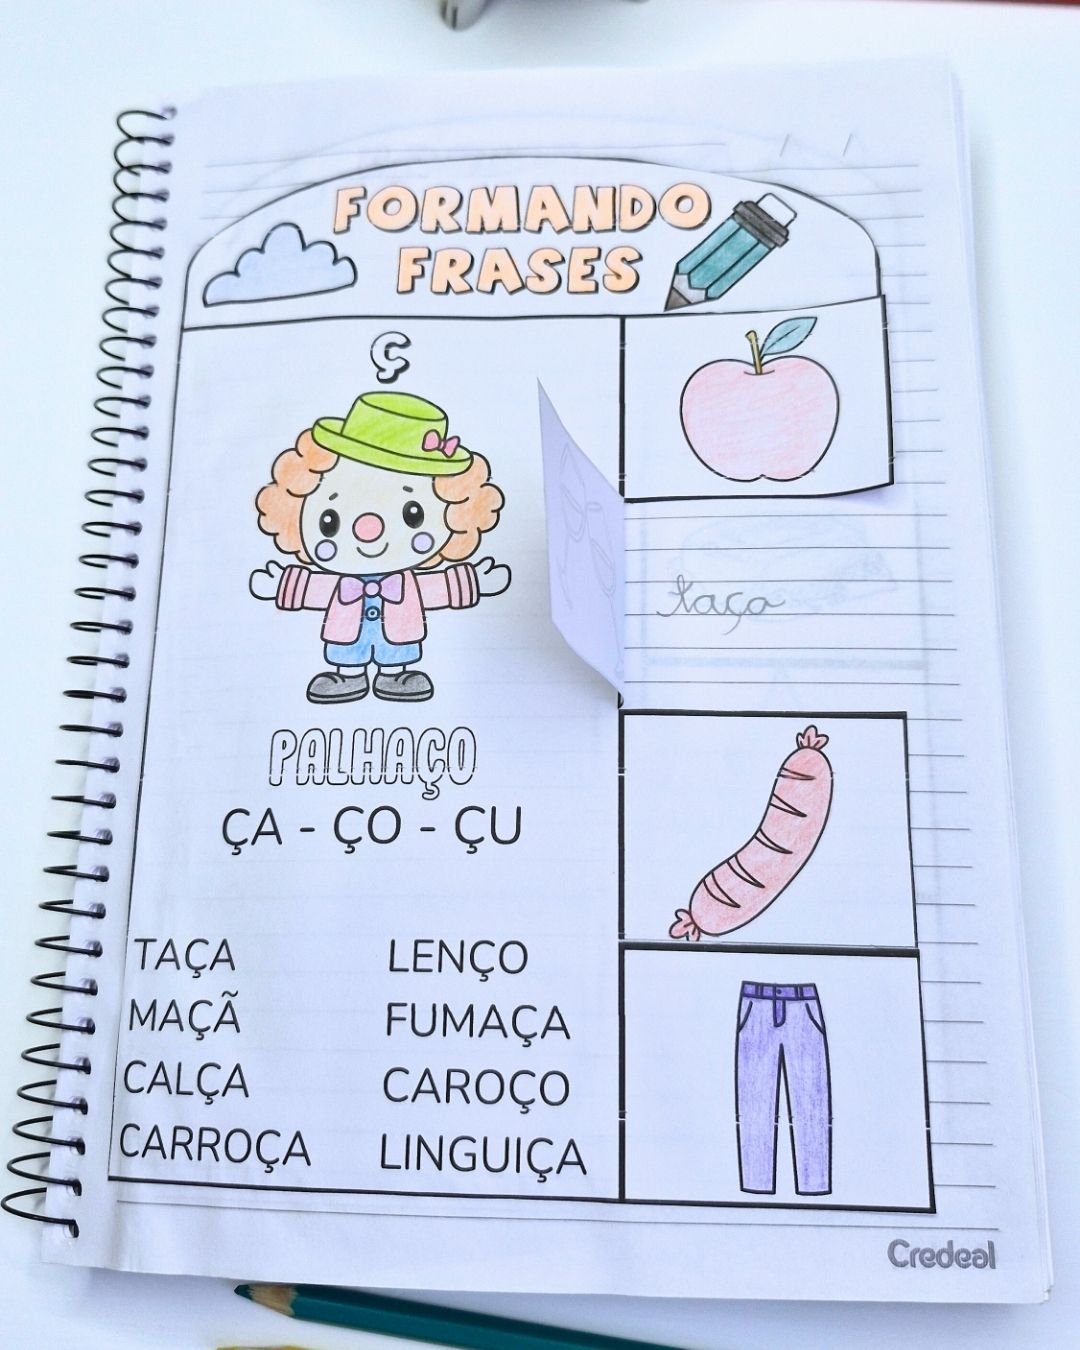 FORMANDO
FRASES
Ç
PALHAÇO
ÇA - ÇO - ÇU
TAÇA
MAÇÃ
CALÇA
CARROÇA
LENÇO
FUMAÇA
CAROÇO
LINGUIÇA
taça
Credeal